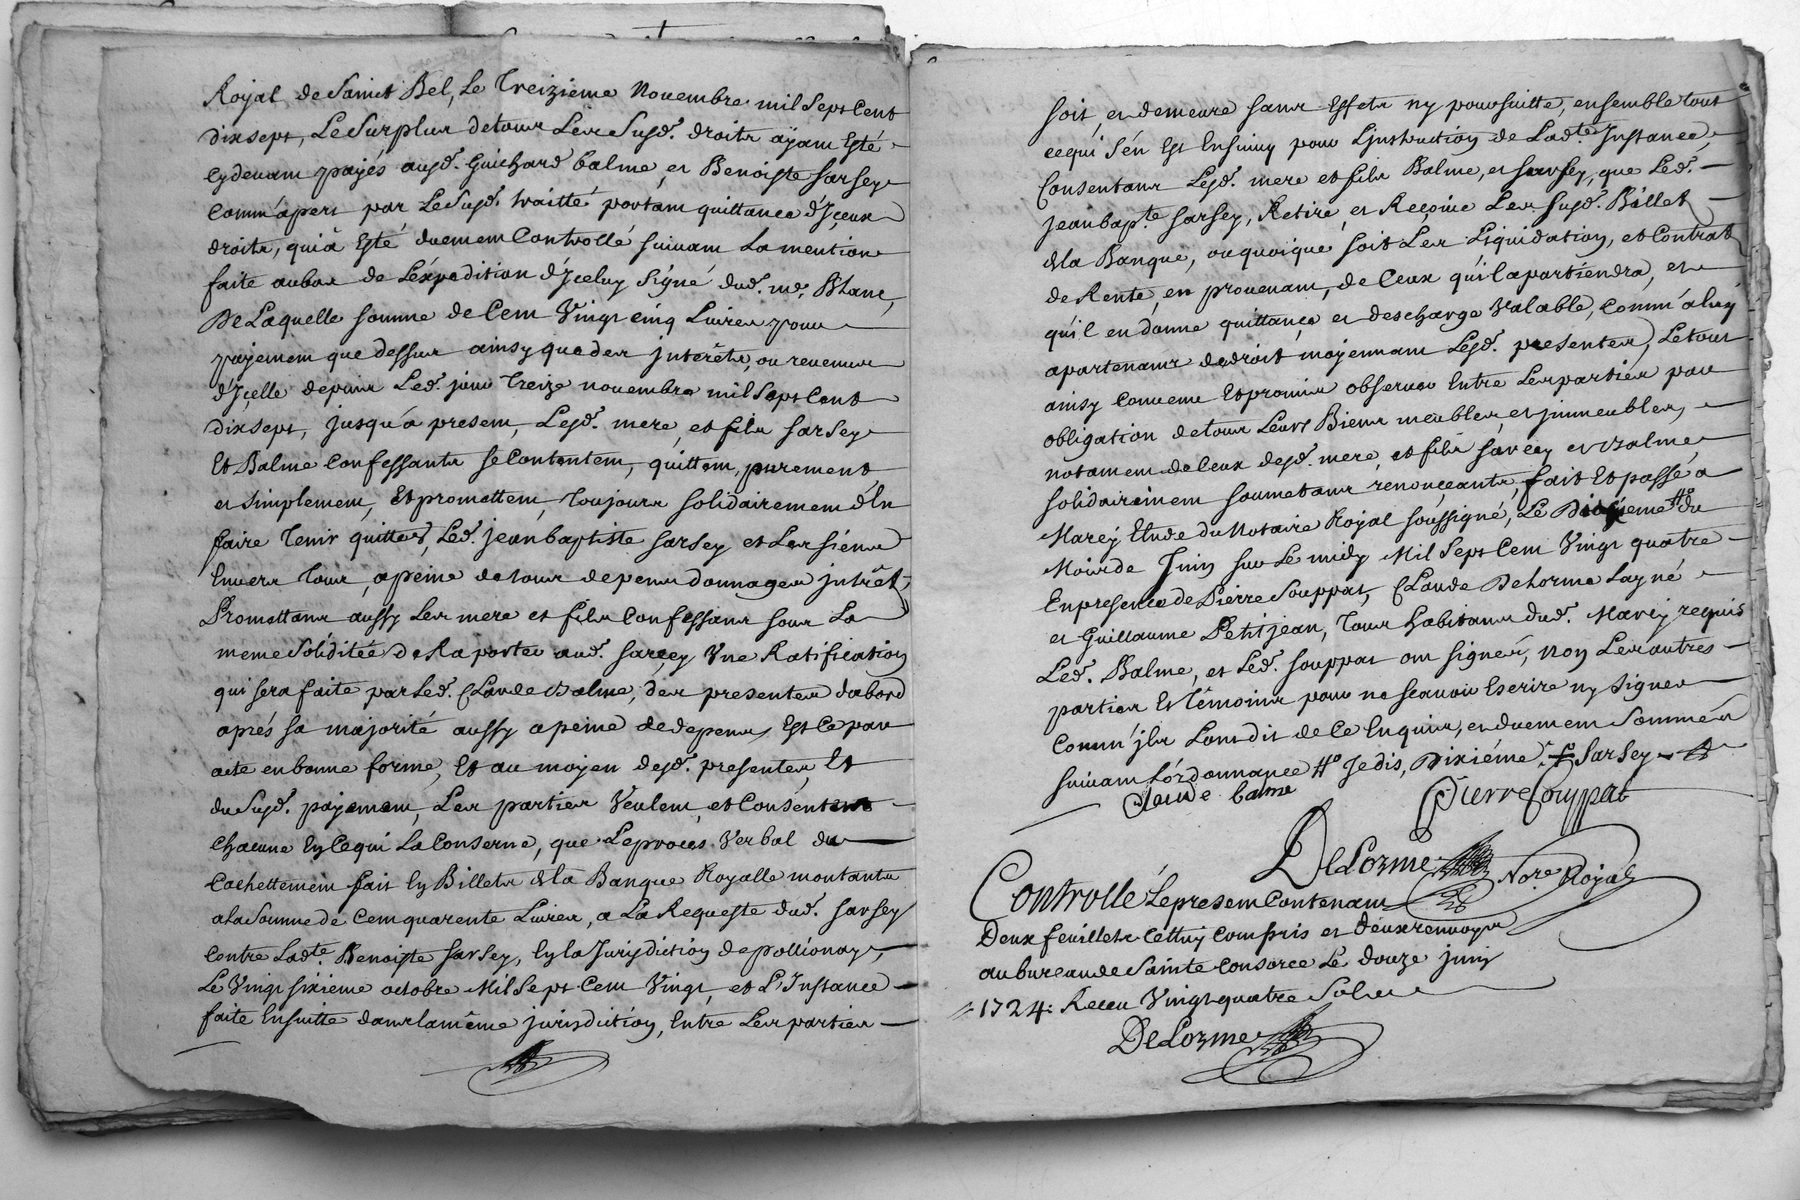 Royal de Sainct Bel, Le Treizieme Novembre mil Sept Cent
dixsept, Le Surplus de tous Les Susd. droits ayant Esté
Cydevant payés ausd. Guichard balme, et Benoiste Sarsey
Comm'apert par Le Susd. traitté portant quittance d'Iceux
droits, qui a Esté duement Controllé suivant La mention
faite aubas de L'expedition d'Iceluy signé dud. me. Blanc,
De Laquelle somme de Cent Vingt cinq Livres pour
payement que dessus ainsy que des jnterêts, ou revenus
d'Icelle depuis Led. jour Treize novembre mil Sept Cent
dixsept, jusqu'á present, Lesd. mere, et fils Sarsey
Et Balme Confessants se Contentent, quittent, purement
et simplement, Et promettent, Toujours solidairement d'En
faire Tenir quittes, Led. jean baptiste Sarsey et Les siens
Envers Tous, a peine de tous depens dommages jntrêt,
Promettans aussy Les mere et fils Confessans sous La
meme soliditée de Raporter aud. Sarcey Une Ratification
qui sera faite par Led. Claude Balme, des presentes dabord
aprés sa majorité aussy a peine de depens, Est Ce par
acte en bonne forme, Et au moyen desd. presentes, Et
du Susd. payement, Les parties Veulent, et Consentent
Chacune En Ce qui La Conserne, que Le procés Verbal du
Cachettement fait En Billets de la Banque Royalle montants
a la Somme de Cent quarente Livres, a La Requeste dud. Sarsey
Contre Lade. Benoiste Sarsey, En la Jurisdiction de pollionay,
Le Vingt sixieme octobre Mil Sept Cent Vingt, et L'Instance
faite Ensuitte dans la même jurisdiction, Entre Les parties
soit, et demeure sans Effets ny poursuitte, ensemble tout
ce qui s'en Est Ensuivy pour L'jnstruction de Lad.te Instance,
Consentans Lesd. mere et fils Balme, et Sarsey, que Led.
jean bap.te Sarsey, Retire, et Reçoive Les Susd. Billets
de la Banque, ou quoique soit Les Liquidation, et Contrat
de Rente, en provenant, de Ceux qu'il apartiendra, et
qu'il en donne quittance et descharge Valable, Comm'a luy
apartenans de droit, moyennant Lesd. presentes, Le tout
ainsy Convenu Et promis observer Entre Les parties par
obligation de tous Leurs Biens meubles, et jmmeubles,
notament de Ceux desd. mere, et fils Sarcey et Balme,
solidairement soumetans renonçeants, fait Et passé a
Marcy Etude du Notaire Royal soussigné, Le Dixieme #o du
Mois de Juin sur Le midy Mil Sept Cent Vingt quatre
En presence de Pierre Souppat, Claude Delorme Layné
et Guillaume Petitjean, Tous habitans dud. Marcy requis
Led. Balme, et Led. Souppat ont signés, non Les autres
parties Et Témoins pour ne scavoir Escrire ny signer
Comm'jls L'ont dit de Ce Enquis, et duement sommés
suivant L'ordonnance #o Je dis, Dixiéme. + Sarsey
Claude balme Pierre Souppat
DeLorme No.re Royal
Controllé Le present Contenant
Deux feuillets Cettuy Compris et deux renvoys
au bureau de Sainte Consorce Le douze juin
1724: Receu Vingt quatre Sols
DeLorme